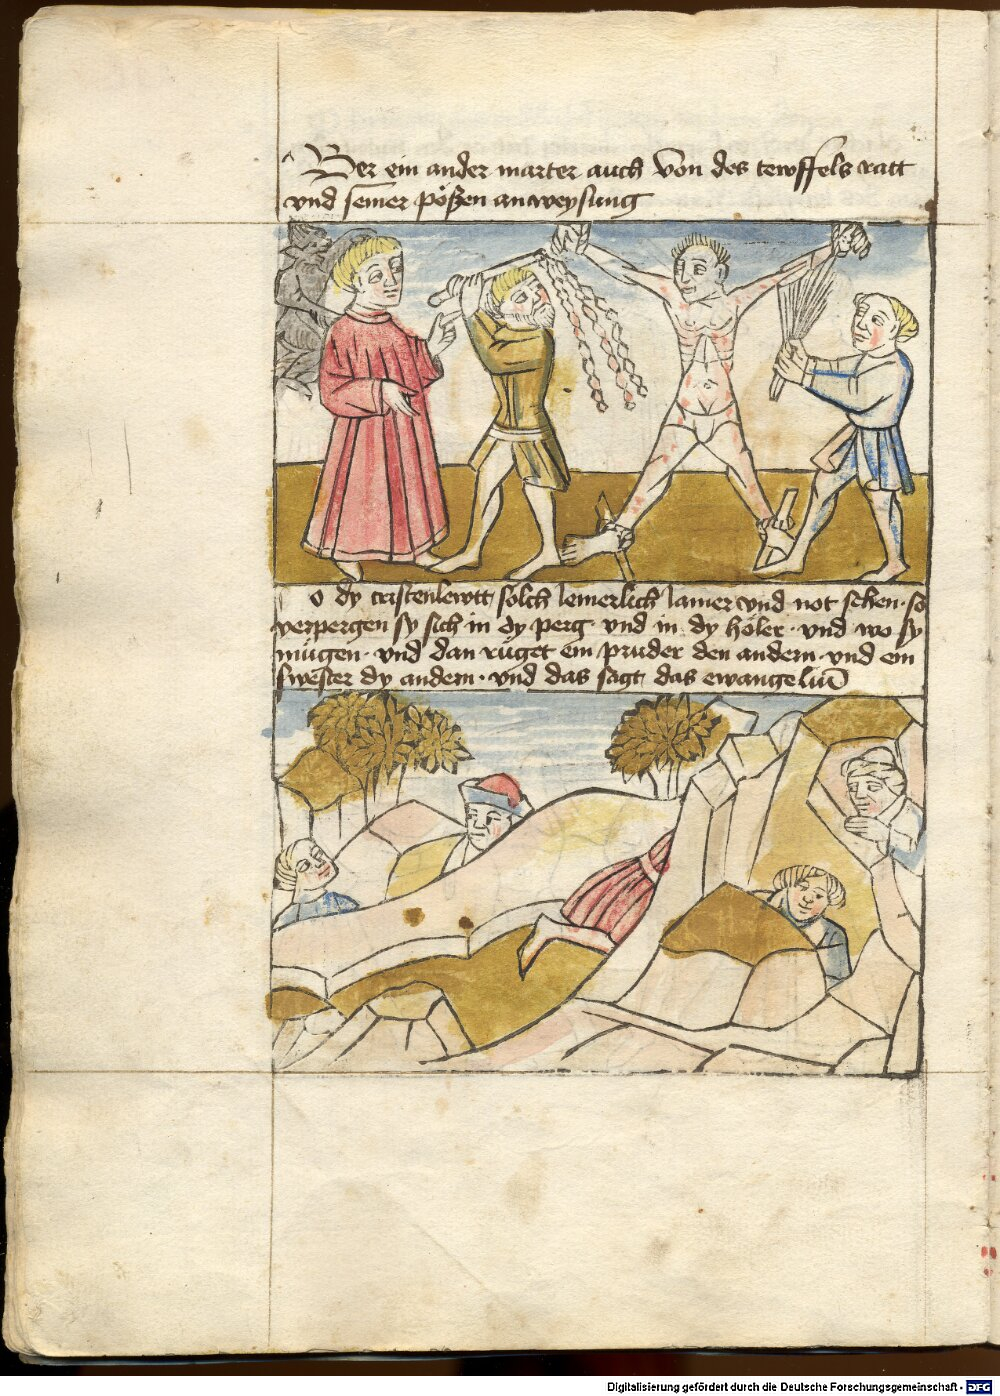 Ber ein ander marter auch von des tewffels ratt
vnd seiner pößen anweysung
o dy cristenlewtt solch iemerlich iamer vnd not sehen · so
verpergen sy sich in dy perg · vnd in dy höler · vnd wo sy
mügen · vnd dan rüget ein pruder den andern · vnd ein
swester dy andern · vnd das sagt das ewangeliū
Digitalisierung gefördert durch die Deutsche Forschungsgemeinschaft - DFG